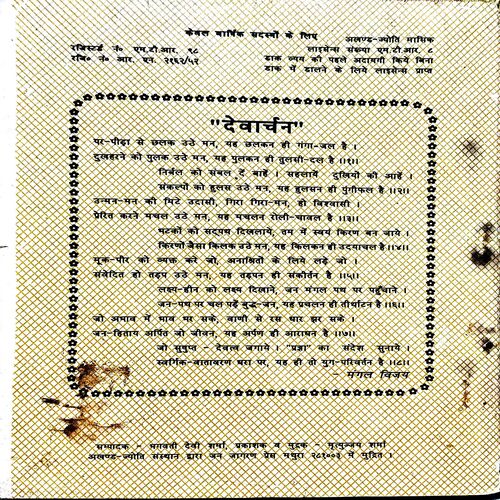 केवल वार्षिक सदस्यों के लिए
अखण्ड-ज्योति मासिक
रजिस्टर्ड नं० एम.टी.आर. १८
लाइसेन्स संख्या एम.टी.आर. ८
रजि० नं० आर. एन. २१६२/५२
डाक व्यय की पहले अदायगी किये बिना
डाक में डालने के लिये लाइसेन्स प्राप्त
"देवार्चन"
पर-पीड़ा से छलक उठे मन, यह छलकन ही गंगा-जल है ।
दुखहरने को पुलक उठे मन, यह पुलकन ही तुलसी-दल है ।।१।।
निर्बल को संबल दें बाहें । सहलायें दुखियों की आहें ।
संकल्पों को हुलस उठे मन, यह हुलसन ही पुंगीफल है ।।२।।
उन्मन-मन की मिटे उदासी, गिरा गिरा-मन, हो विश्वासी ।
प्रेरित करने मचल उठे मन, यह मचलन रोली-चावल है ।।३।।
भटकों को सद्पथ दिखलाये, तम में स्वयं किरण बन जाये ।
किरणों जैसा किलक उठे मन, यह किलकन ही उदयाचल है ।।४।।
मूक-पीर को व्यक्त करे जो, अनाश्रितों के लिये लड़े जो ।
संवेदित हो तड़प उठे मन, यह तड़पन ही संकीर्तन है ।।५।।
लक्ष्य-हीन को लक्ष्य दिखाने, जन मंगल पथ पर पहुँचाने ।
जन-पथ पर चल पड़ें बुद्ध-जन, यह प्रचलन ही तीर्थाटन है ।।६।।
जो अभाव में भाव भर सके, वाणी से रस धार झर सके ।
जन-हिताय अर्पित जो जीवन, यह अर्पण ही आराधन है ।।७।।
जो सुषुप्त - देवत्व जगाये । "प्रज्ञा" का संदेश सुनाये ।
स्वर्गिक-वातावरण धरा पर, यह ही तो युग-परिवर्तन है ।।८।।
मंगल विजय
सम्पादक - भगवती देवी शर्मा, प्रकाशक व मुद्रक - मृत्युञ्जय शर्मा
अखण्ड-ज्योति संस्थान द्वारा जन जागरण प्रेस मथुरा २८१००३ में मुद्रित ।